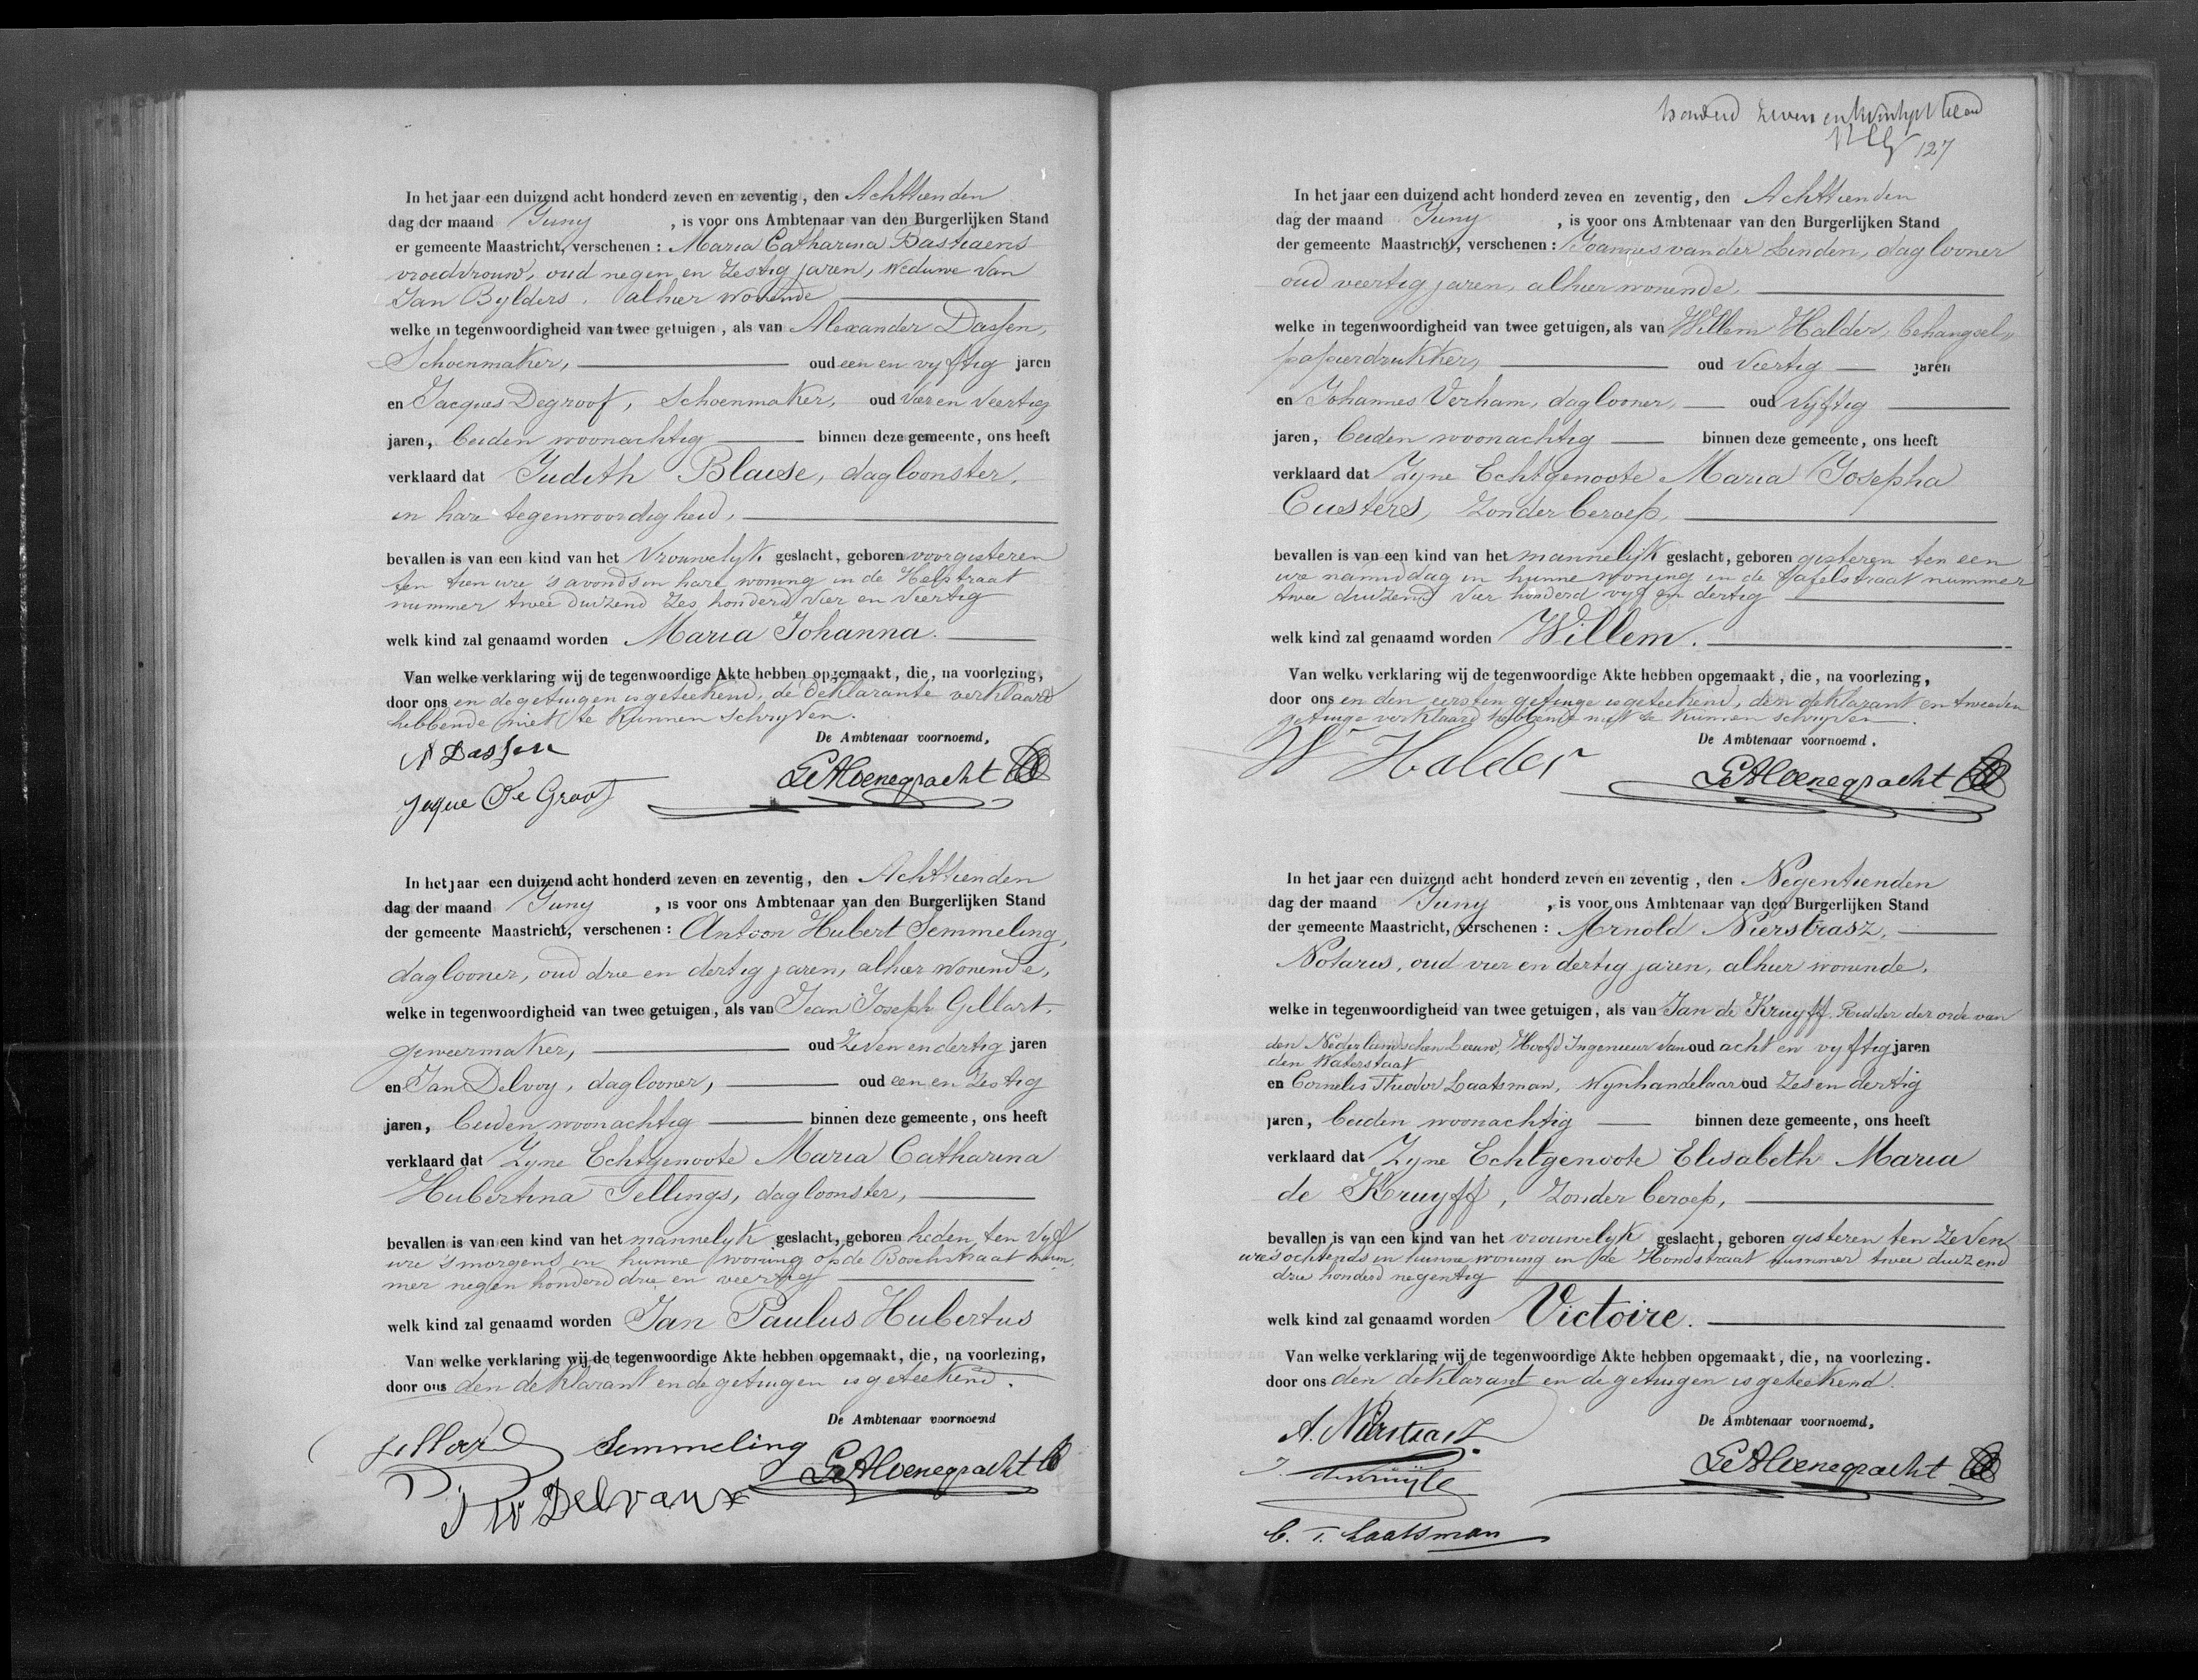 In het jaar een duizend acht honderd zeven en zeventig, den Achttienden
dag der maand Juny , is voor ons Ambtenaar van den Burgerlijken Stand
er gemeente Maastricht, verschenen : Maria Catharina Bastiaens
vroedvrouw, oud negen en zestig jaren, weduwe van
Jan Bylders, alhier wonende
welke in tegenwoordigheid van twee getuigen, als van Alexander Dassen,
Schoenmaker, oud een en vyftig jaren
en Jacques Degroof, Schoenmaker, oud vier en veertig
jaren, beiden woonachtig binnen deze gemeente, ons heeft
verklaard dat Judith Blaise, dagloonster,
in hare tegenwoordigheid,
bevallen is van een kind van het vrouwelyk geslacht, geboren voorgisteren
ten tien ure 's avonds in hare woning in de Helstraat
nummer twee duizend zes honderd vier en veertig
welk kind zal genaamd worden Maria Johanna.
Van welke verklaring wij de tegenwoordige Akte hebben opgemaakt, die, na voorlezing,
door ons en de getuigen is geteekend, de deklarante verklaard
hebbende niet te kunnen schryven.
De Ambtenaar voornoemd,
A Dassen
Jaque De Groof
In het jaar een duizend acht honderd zeven en zeventig, den Achttienden
dag der maand Juny , is voor ons Ambtenaar van den Burgerlijken Stand
der gemeente Maastricht, verschenen : Antoon Hubert Semmeling,
daglooner, oud drie en dertig jaren, alhier wonende,
welke in tegenwoordigheid van twee getuigen, als van Jean Joseph Gillart,
geweermaker, oud zeven en dertig jaren
en Jan Delvoy, daglooner, oud een en zestig
jaren, beiden woonachtig binnen deze gemeente, ons heeft
verklaard dat Zyne Echtgenoote Maria Catharina
Hubertina Tellings, dagloonster,
bevallen is van een kind van het mannelyk geslacht, geboren heden ten vyf
ure 's morgens in hunne woning op de Boschstraat num
mer negen honderd drie en veertig
welk kind zal genaamd worden Jan Paulus Hubertus
Van welke verklaring wij de tegenwoordige Akte hebben opgemaakt, die, na voorlezing,
door ons den deklarant en de getuigen is geteekend.
De Ambtenaar voornoemd
Semmeling
Delvaux
honderd zeven en twintigst blad
127
In het jaar een duizend acht honderd zeven en zeventig, den Achttienden
dag der maand Juny , is voor ons Ambtenaar van den Burgerlijken Stand
der gemeente Maastricht, verschenen : Joannes van der Linden, daglooner
oud veertig jaren, alhier wonende,
welke in tegenwoordigheid van twee getuigen, als van Willem Halder, behangsel„
papierdrukker, oud veertig jaren
en Johannes Verham, daglooner, oud vijftig
jaren, beiden woonachtig binnen deze gemeente, ons heeft
verklaard dat Zyne Echtgenoote Maria Josepha
Custers, zonder beroep,
bevallen is van een kind van het mannelijk geslacht, geboren gisteren ten een
ure namiddag in hunne woning in de Tafelstraat nummer
twee duizend vier honderd vyf en dertig
welk kind zal genaamd worden Willem.
Van welke verklaring wij de tegenwoordige Akte hebben opgemaakt, die, na voorlezing,
door ons en den eersten getuige is geteekend, den deklarant en tweeden
getuige verklaard hebbende niet te kunnen schryven.
De Ambtenaar voornoemd.
Wm Halder
In het jaar een duizend acht honderd zeven en zeventig, den Negentienden
dag der maand Juny , is voor ons Ambtenaar van den Burgerlijken Stand
der gemeente Maastricht, verschenen : Arnold Nierstrasz,
Notaris, oud vier en dertig jaren, alhier wonende,
welke in tegenwoordigheid van twee getuigen, als van Jan de Kruyff, Ridder der orde van
den Nederlandschen Leeuw, Hoofd Ingenieur van oud acht en vyftig jaren
den Waterstaat
en Cornelis Theodor Laatsman, Wynhandelaar oud zes en dertig
jaren, beiden woonachtig binnen deze gemeente, ons heeft
verklaard dat Zyne Echtgenoote Elisabeth Maria
de Kruyff, zonder beroep,
bevallen is van een kind van het vrouwelyk geslacht, geboren gisteren ten zeven
ure 's ochtends in hunne woning in de Hondstraat nummer twee duizend
drie honderd negentig
welk kind zal genaamd worden Victoire.
Van welke verklaring wij de tegenwoordige Akte hebben opgemaakt, die, na voorlezing.
door ons den deklarant en de getuigen is geteekend.
De Ambtenaar voornoemd,
A. Nierstrasz
C. T. Laatsman